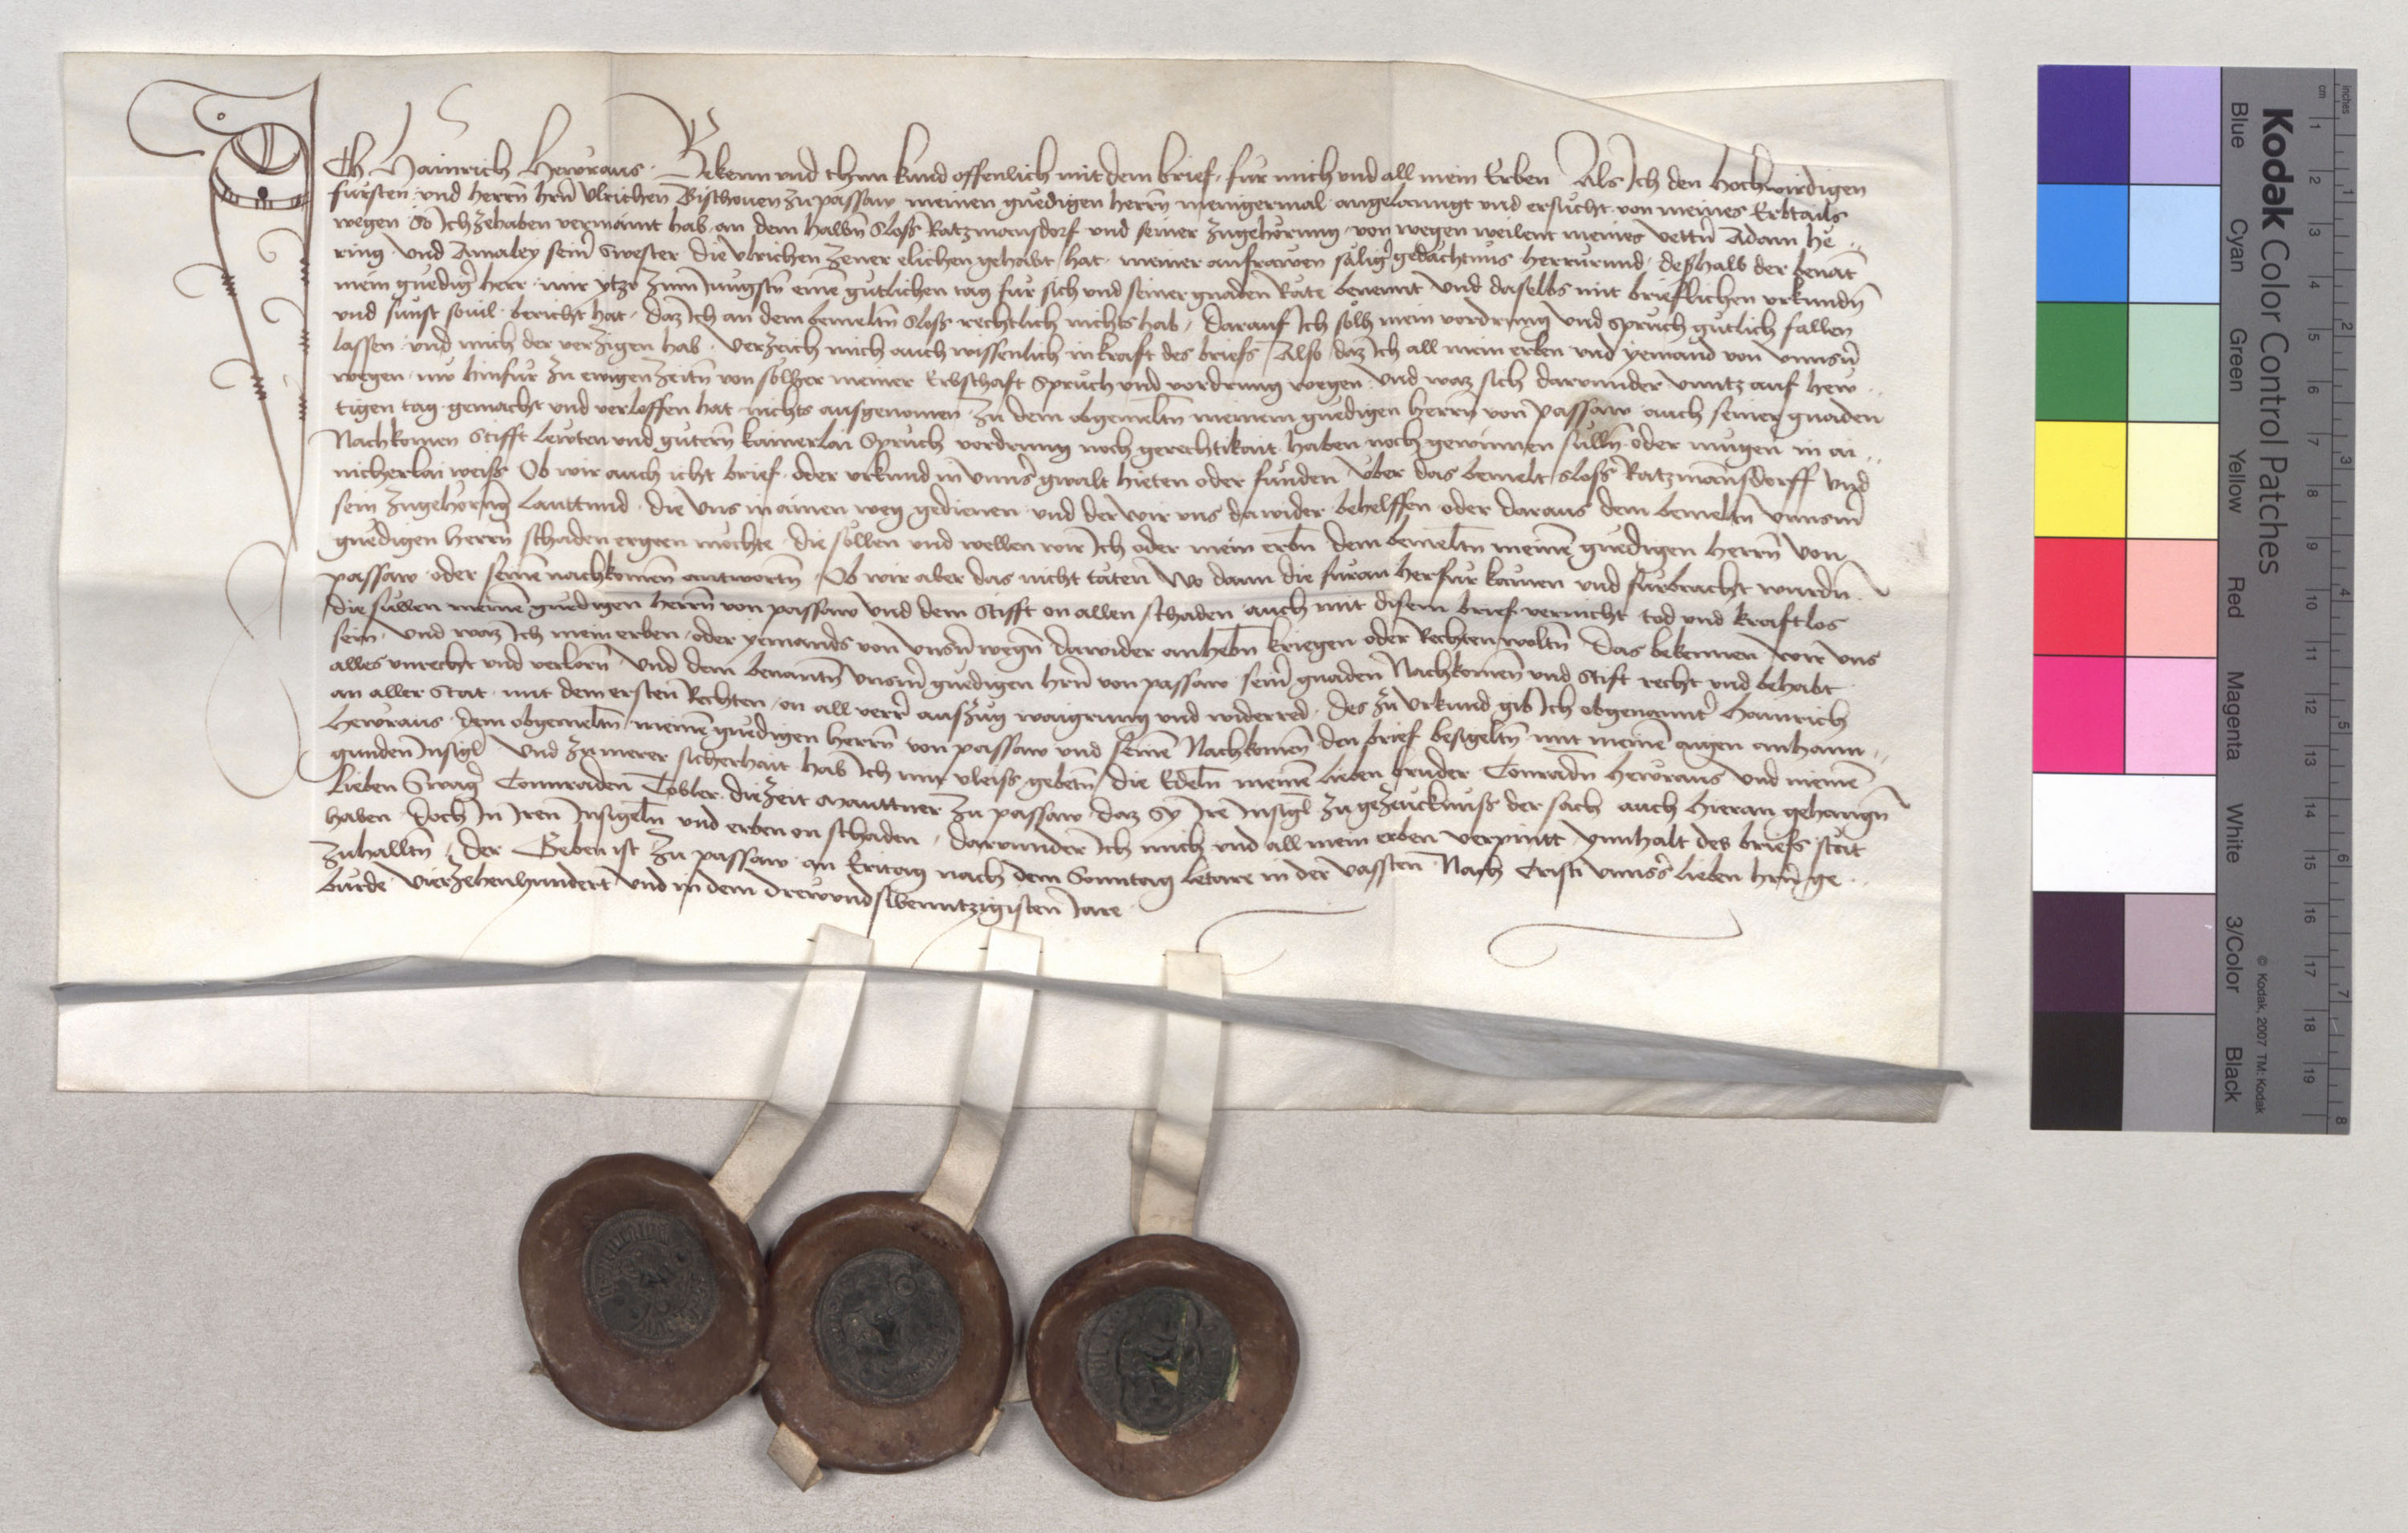 Ich Hainrich Hewraus. Bekenn vnd thun kund offenlich mit dem brief, fur mich vnd all mein Erben Als Ich den Hochwirdigen
fursten vnd herrn hrn Vlrichen Bischouen zu passaw meinen gnedigen herrn menigermal angelanngt vnd ersucht von meines Erbtails
wegen So Ich zehaben vermaint hab an dem halbn Sloss Ratzmansdorf vnd seiner zugehorung von wegen weilent meines vettrn Adam He
ring vnd Amaley seinr Swester die Vlrichen Zener elichen gehabt hat meiner anfrawen säliger gedächtnus herrurund, deßhalb der benāt
mein gnedigr herr mir ytzo zum Iungstn einē gutlichen tag fur sich vnd seiner gnaden Räte benennt vnd daselbs mit brieflichen vrkundn
vnd sunst souil bericht hat, daz Ich an dem bemeltn Sloss rechtlich nichts hab, darauf Ich solh mein vordrung vnd Spruch gutlich fallen
lassen vnd mich der verzigen hab verzeich mich auch wissenlich in kraft des briefs Also daz Ich all mein erben vnd yemand von vnnsrn
wegen nw hinfur zu ewigen zeitn von solher meiner Erbschaft Spruch vnd vordrung wegen vnd waz sich darunnder vnntz auf hew
tigen tag gemacht vnd verloffen hat nichts ausgenomen zu dem obgemeltn meinem gnedigen herrn von passaw auch seiner gnaden
Nachkomen Stifft lewten vnd gutern kainerlai Spruch vordrung noch gerechtikait haben noch gewinnen sulln oder mugen in ai
nicherlai weiss Ob wir auch icht brief oder vrkund in vnnsr gwalt hieten oder funden vber das bemelt sloss Ratzmannsdorff vnd
sein zugehorung lauttund die vns in ainen weg gedienen vnd der wir vns dawider behelffen oder daraus dem bemeltn vnnsrm
gnedigen herrn schaden ergeen mochte die sollen vnd wellen wir Ich oder mein erbn dem bemeltn meinē gnedigen herrn von
passaw oder seinē nachkomen antwortn Ob wir aber das nicht täten Wo dann die furan herfur kämen vnd furbracht wurdn
die sullen meinē gnedigen herrn von passaw vnd dem Stifft on allen schaden auch mit disem brief vernicht tod vnd kraftlos
sein vnd waz Ich mein erben oder yemands von vnsrn wegn dawider anhebn kriegen oder Rechten woltn Das bekennen wir vns
alles vnrecht vnd verlorn vnd dem benantn vnsrm gnedigen hrn von passaw seinr gnaden Nachkomen vnd Stift recht vnd behabt
an aller Stat mit dem ersten Rechten on all verrer auszug waigrung vnd widerred des zu vrkund gib Ich obgenannter Hainrich
Hewraus dem obgemeltn meinē gnedigen herrn von passaw vnd seinē Nachkomen den brief besigeltn mit meinē aigen anhann
gunden Insigl Vnd zu merer sicherhait hab Ich mit vleiss gebetn die Edeln meinē lieben bruder Conradn Hewraus vnd meinē
lieben Swagr Connraden Tobler die zeit Mauttner zu passaw daz Sy Ire Insigl zu gezeucknuss der sach auch hieran gehangn
haben doch In Iren Insigeln vnd erben on schaden darunnder Ich mich vnd all mein erben verpintt ynnhalt des briefs stät
zuhalltn Der Geben ist zu passaw an Eritag nach dem Sonntag Letare in der vassten Nach Cristi vnnsrs lieben hrn ge
burde Vierzehenhundert vnd in dem drewundsibenntzigisten Iare
Kodak Color Control Patches
© Kodak, 2007 TM: Kodak
Blue Cyan Green Yellow Red Magenta White 3/Color Black
cm 1 2 3 4 5 6 7 8 9 10 11 12 13 14 15 16 17 18 19
inches 1 2 3 4 5 6 7 8